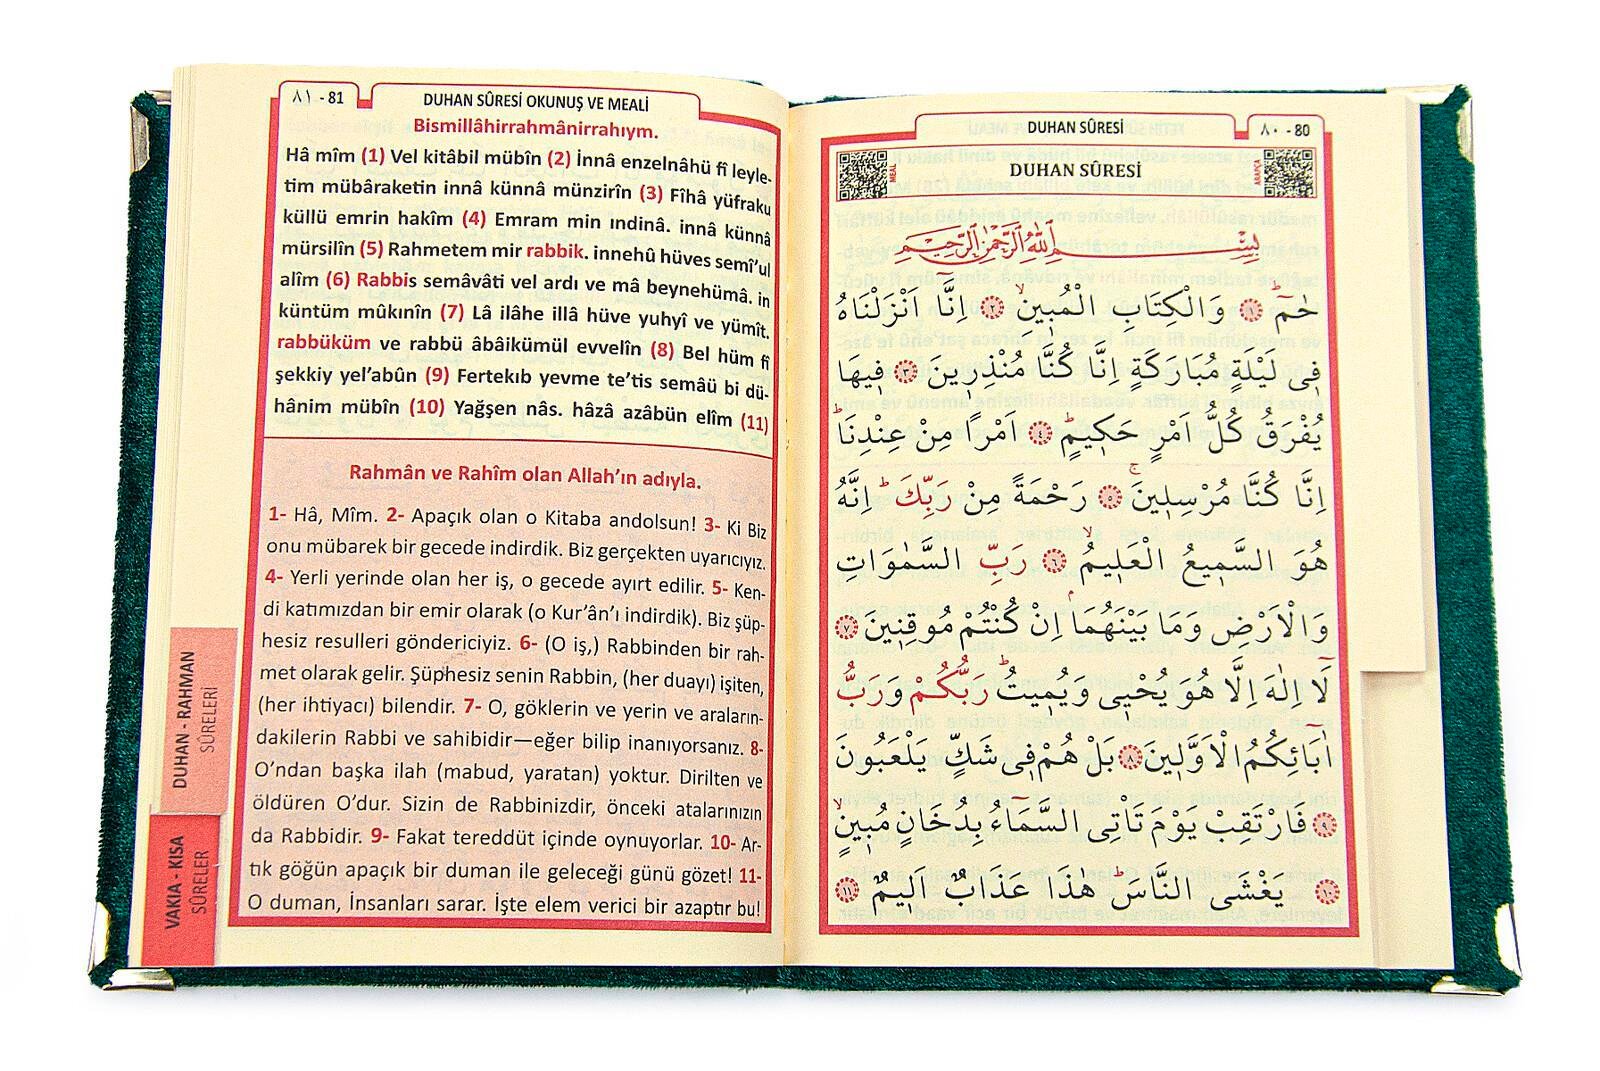 ٨١ - 81
DUHAN SÛRESİ OKUNUŞ VE MEALİ
Bismillâhirrahmânirrahıym.
Hâ mîm (1) Vel kitâbil mübîn (2) İnnâ enzelnâhü fî leyle-
tim mübâraketin innâ künnâ münzirîn (3) Fîhâ yüfraku
küllü emrin hakîm (4) Emram min indinâ. innâ künnâ
mürsilîn (5) Rahmetem mir rabbik. innehû hüves semî’ul
alîm (6) Rabbis semâvâti vel ardı ve mâ beynehümâ. in
küntüm mûkınîn (7) Lâ ilâhe illâ hüve yuhyî ve yümît.
rabbüküm ve rabbü âbâikümül evvelîn (8) Bel hüm fî
şekkiy yel’abûn (9) Fertekıb yevme te’tis semâü bi dü-
hânim mübîn (10) Yağşen nâs. hâzâ azâbün elîm (11)
Rahmân ve Rahîm olan Allah’ın adıyla.
1- Hâ, Mîm. 2- Apaçık olan o Kitaba andolsun! 3- Ki Biz
onu mübarek bir gecede indirdik. Biz gerçekten uyarıcıyız.
4- Yerli yerinde olan her iş, o gecede ayırt edilir. 5- Ken-
di katımızdan bir emir olarak (o Kur’ân’ı indirdik). Biz şüp-
hesiz resulleri göndericiyiz. 6- (O iş,) Rabbinden bir rah-
met olarak gelir. Şüphesiz senin Rabbin, (her duayı) işiten,
(her ihtiyacı) bilendir. 7- O, göklerin ve yerin ve araların-
dakilerin Rabbi ve sahibidir—eğer bilip inanıyorsanız. 8-
O’ndan başka ilah (mabud, yaratan) yoktur. Dirilten ve
öldüren O’dur. Sizin de Rabbinizdir, önceki atalarınızın
da Rabbidir. 9- Fakat tereddüt içinde oynuyorlar. 10- Ar-
tık göğün apaçık bir duman ile geleceği günü gözet! 11-
O duman, İnsanları sarar. İşte elem verici bir azaptır bu!
DUHAN - RAHMAN
SÛRELERİ
VAKIA - KISA
SÛRELER
DUHAN SÛRESİ
٨٠ - 80
MEAL
DUHAN SÛRESİ
ARAPÇA
بِسْمِ اللّٰهِ الرَّحْمٰنِ الرَّحِيمِ
حٰمٓ ۚ ﴿١﴾ وَالْكِتَابِ الْمُبٖينِ ۙ ﴿٢﴾ اِنَّٓا اَنْزَلْنَاهُ
فٖى لَيْلَةٍ مُبَارَكَةٍ اِنَّا كُنَّا مُنْذِرٖينَ ﴿٣﴾ فٖيهَا
يُفْرَقُ كُلُّ اَمْرٍ حَكٖيمٍ ۙ ﴿٤﴾ اَمْرًا مِنْ عِنْدِنَا ؕ
اِنَّا كُنَّا مُرْسِلٖينَ ۚ ﴿٥﴾ رَحْمَةً مِنْ رَبِّكَ ؕ اِنَّهُ
هُوَ السَّمٖيعُ الْعَلٖيمُ ۙ ﴿٦﴾ رَبِّ السَّمٰوَاتِ
وَالْاَرْضِ وَمَا بَيْنَهُمَا ۢ اِنْ كُنْتُمْ مُوقِنٖينَ ﴿٧﴾
لَٓا اِلٰهَ اِلَّا هُوَ يُحْيٖى وَيُمٖيتُ ؕ رَبُّكُمْ وَرَبُّ
اٰبَٓائِكُمُ الْاَوَّلٖينَ ﴿٨﴾ بَلْ هُمْ فٖى شَكٍّ يَلْعَبُونَ
﴿٩﴾ فَارْتَقِبْ يَوْمَ تَاْتِى السَّمَٓاءُ بِدُخَانٍ مُبٖينٍ ۙ
﴿١٠﴾ يَغْشَى النَّاسَ ؕ هٰذَا عَذَابٌ اَلٖيمٌ ﴿١١﴾